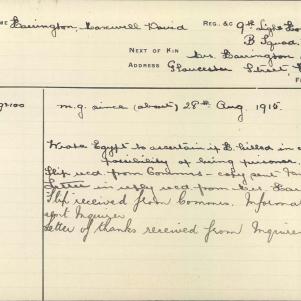 ME Carrington, Maxwell David REG. &C 9th Light Ho
B Squad.
NEXT OF KIN Mrs. Carrington
ADDRESS Gloucester Street,
m.g. since (about) 28th Aug. 1915
Wrote Egypt to ascertain if B. killed in
possibility of being prisoner.
Slip recd from Comms - copy sent
Letter in reply recd from Mrs.
Slip received from Commrs. Informat
sent Inquirer
Letter of thanks received from Inquirer